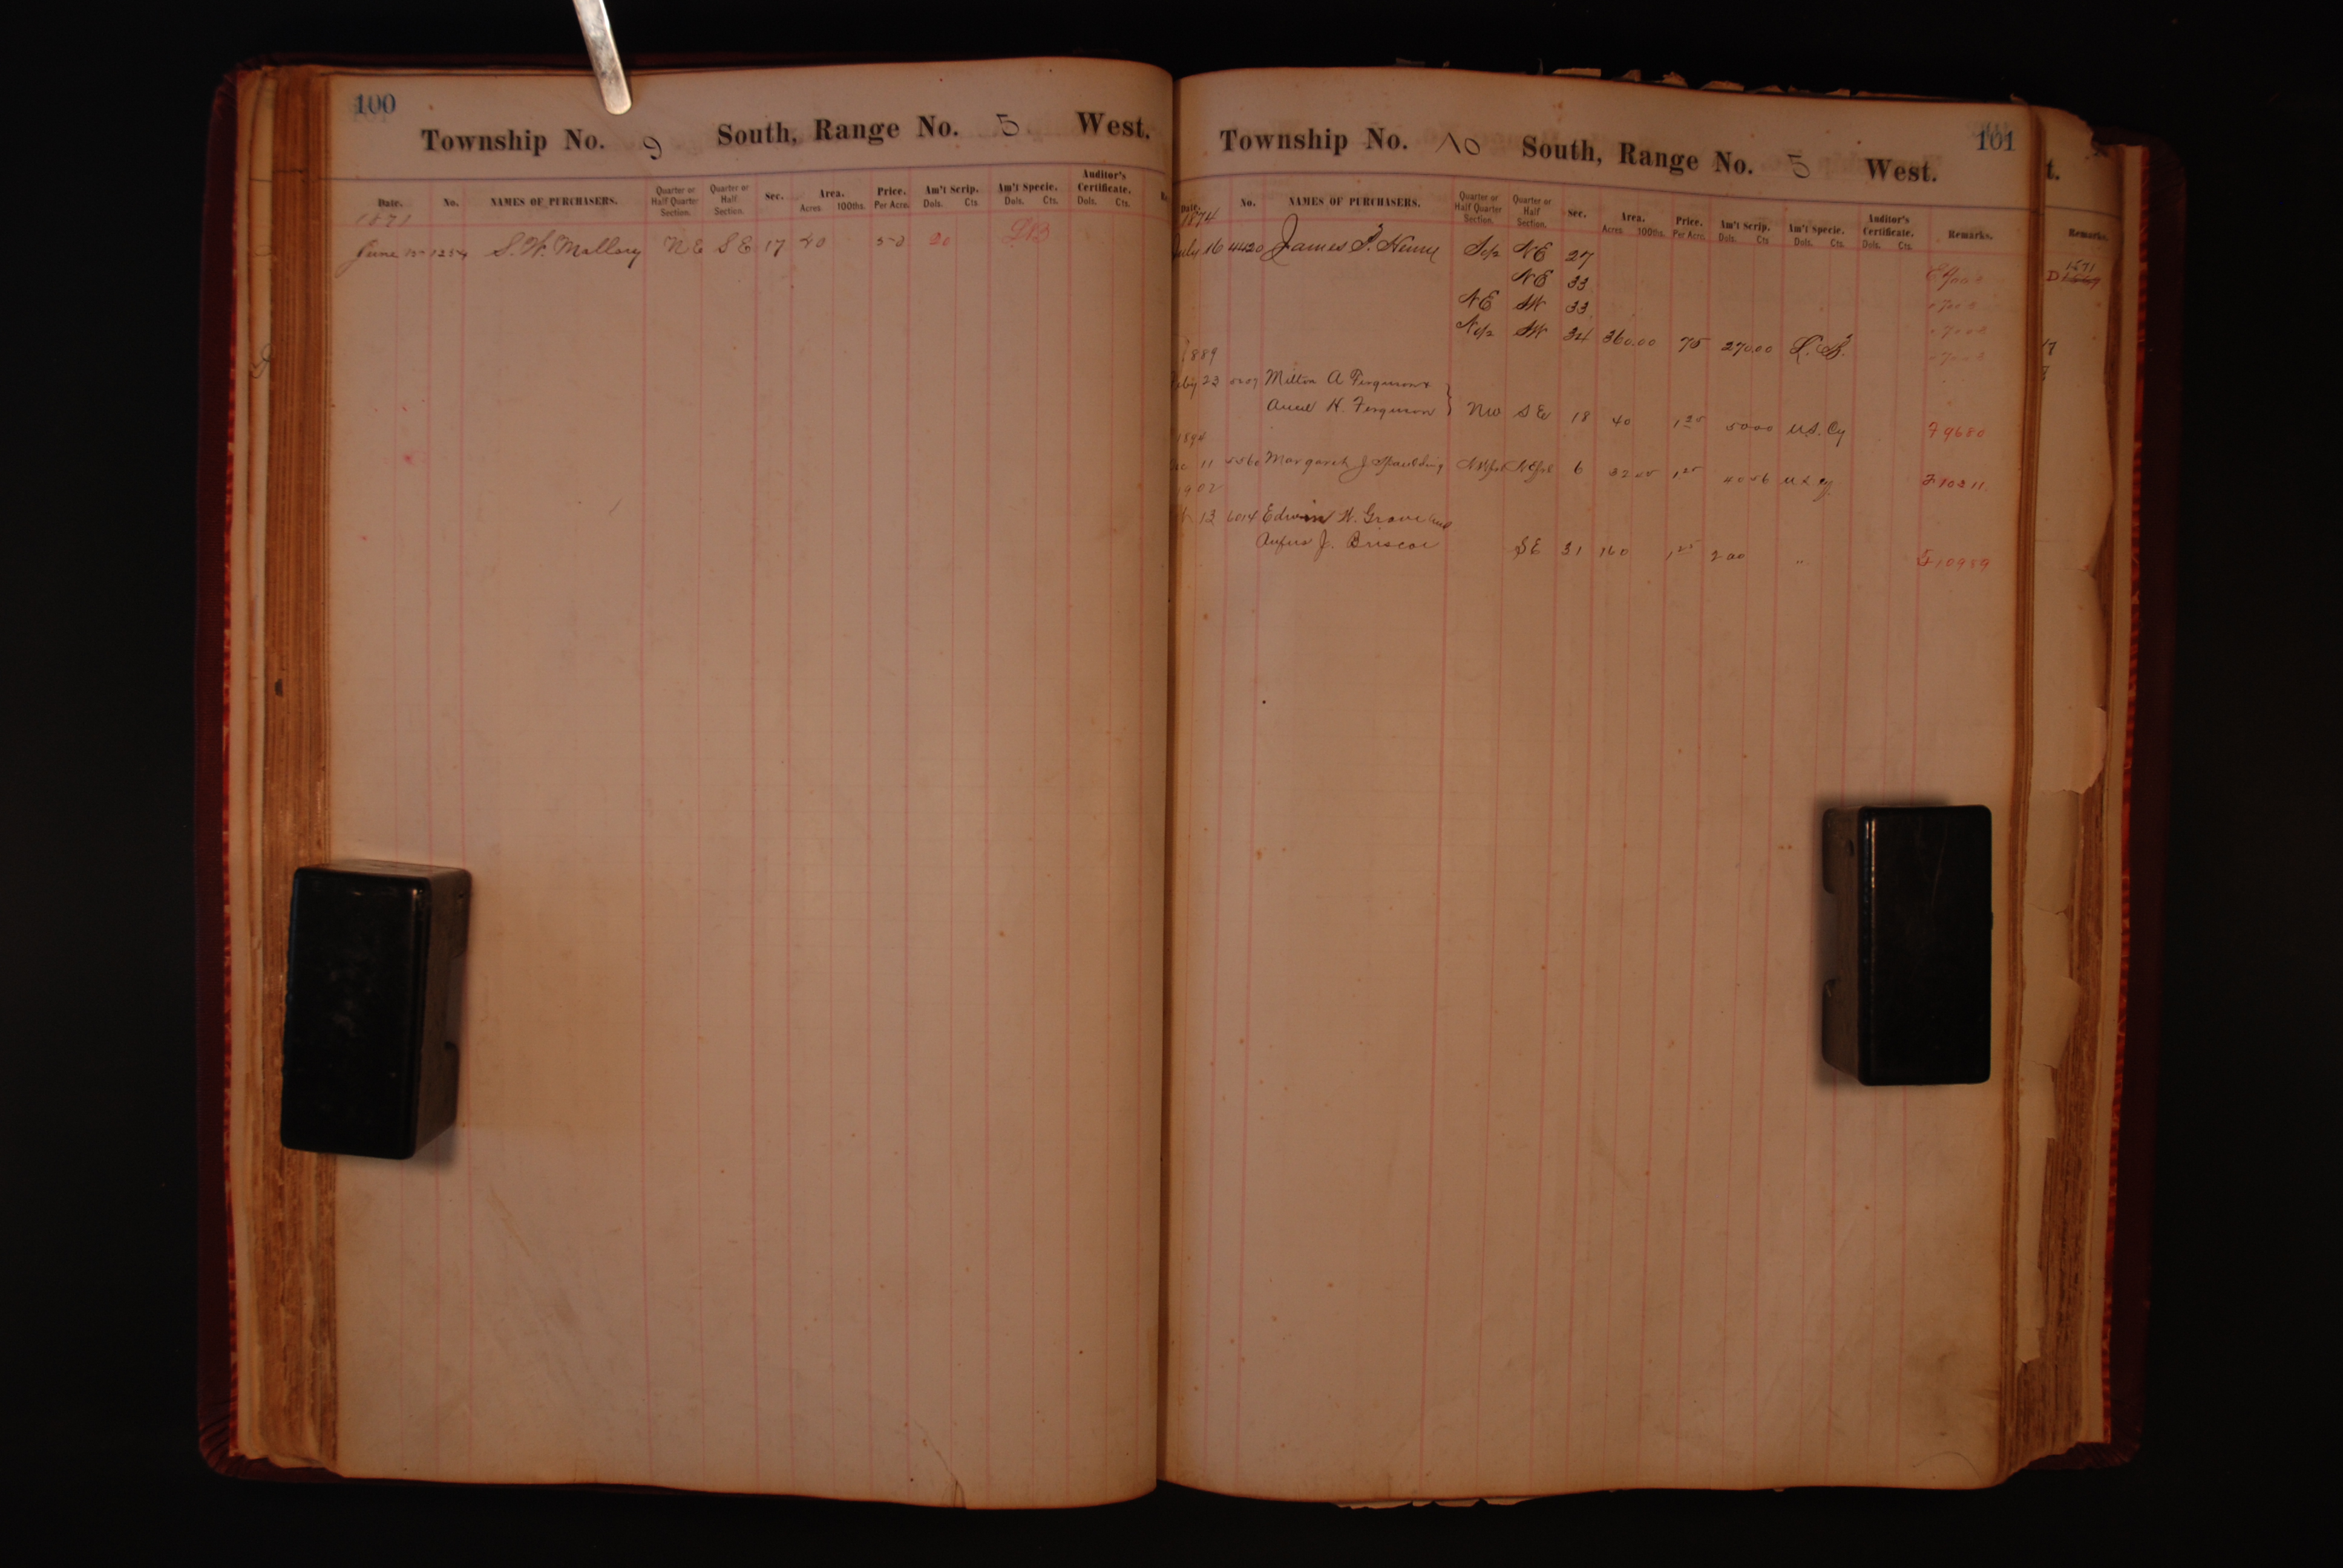 100
Township No. 9 South, Range No. 5 West.
Date. No. NAMES OF PURCHASERS. Quarter or Half Quarter Section. Quarter or Half Section. Sec. Area. Acres 100ths. Price. Per Acre. Am't Scrip. Dols. Cts. Am't Specie. Dols. Cts. Auditor's Certificate. Dols. Cts.
1871
June 15 1254 S. W. Mallory NE SE 17 40 50 20
101
Township No. 10 South, Range No. 5 West.
Date. No. NAMES OF PURCHASERS. Quarter or Half Quarter Section. Quarter or Half Section. Sec. Area. Acres 100ths. Price. Per Acre. Am't Scrip. Dols. Cts Am't Specie. Dols. Cts. Auditor's Certificate. Dols. Cts. Remarks.
1874
July 16 4420 James P. Henry S 1/2 NE 27
NE 33
NE SW 33
N 1/2 SW 34 360.00 75 270.00 L.S.
1889
23 Milton A Ferguson &
H. Ferguson } NW SE 18 40 1 25 50 00 U.S. Cy 79680
1894
11 Margaret J Spaulding NW frl NE frl 6 32 45 1 25 40 56 U S Cy 10211
1902
13 6014 Edwin W. Grove and
Rufus J. Briscoe SE 31 160 1 25 200 " 10989
t.
Remarks.
1571
D